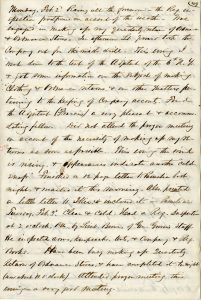 Monday, Feb 2 During all the forenoon the Reg
spection postponed on account of the weather. Was
engaged in making up my Quarterly return of Ordnance
& Ordnance stores. In the afternoon the
Company out for the skirmish drill. This evening I
went down to the tent of the Adjutant of the
& got some information on the subject of making
Clothing & Ordnance returns & on other matters per
taining to the keeping of Company accounts. Found
the Adjutant a very pleasant & accommo
dating fellow. Did not attend the prayer meeting
on account of the necessity of making up my Re
turns as soon as possible. This evening the wind
is rising & appearances indicate another cold
snap. Finished a 12 page letter to last
night & mailed it this morning. Also penned
a little letter to & enclosed it
Tuesday, Feb. 3. Clear & Cold. Had a Reg. Inspection
at 2 o'clock. by Lieut. of Gen. staff.
He inspected arms, knapsacks, tents, & Company & Reg.
books. Have been busy making up Quarterly
Return of Ordnance Stores, & have completed it to-night
(12 o'clock). Attended prayer meeting this
evening a very good meeting.